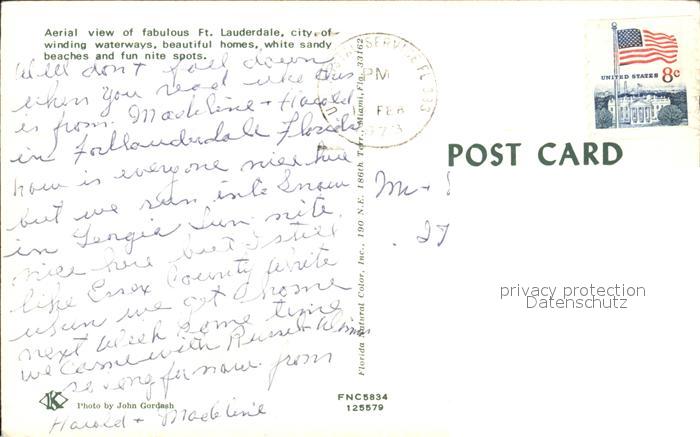 Aerial view of fabulous Ft. Lauderdale, city of
winding waterways, beautiful homes, white sandy
beaches and fun nite spots.
Well don't fall down
when you read like this
is from. Madeline + Harold
in Fortlauderdale Florida
how is everyone nice here
but we ran into Snow
in Georgia Sun. nite.
nice here but I still
like Essex County write
when we get home
next week some time
we came with Russel
so long for now. from
Harold + Madeline
Photo by John Gordash
K
FNC5834
125579
Florida Natural Color, Inc., 190 N.E. 186th Terr., Miami, Fla. 33162
SERVICE FL 333
PM
FEB
1973
UNITED STATES 8c
POST CARD
privacy protection
Datenschutz